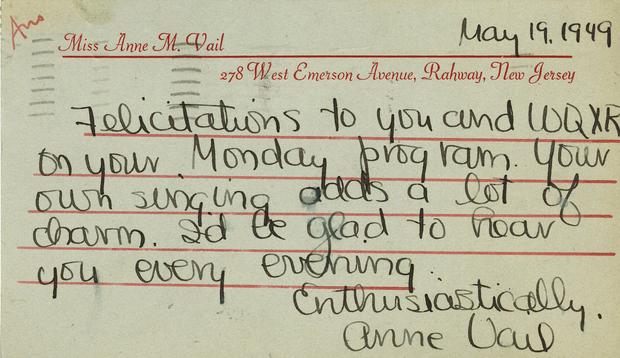 Ans
Miss Anne M. Vail
May 19, 1949
278 West Emerson Avenue, Rahway, New Jersey
Felicitations to you and WQXR
on your Monday program. Your
own singing adds a lot of
charm. I'd be glad to hear
you every evening
Enthusiastically.
Anne Vail